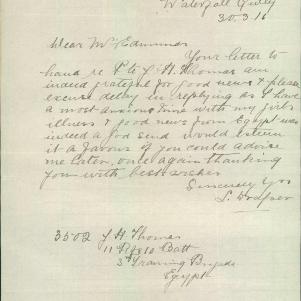 Waterfall Gully
30.3.16
Dear Mr Edmunds
Your letter to
hand re Pte J H Thomas am
indeed grateful for good news & please
excuse delay in replying as I have
a most anxious time with my girls
illness & good news from Egypt was
indeed a God send would esteem
it a favour if you could advise
me later, once again thanking
you with best wishes
Sincerely Yrs
3502 J H Thomas
11 Rfs 10 Batt
3rd Training Brigade
Egypt